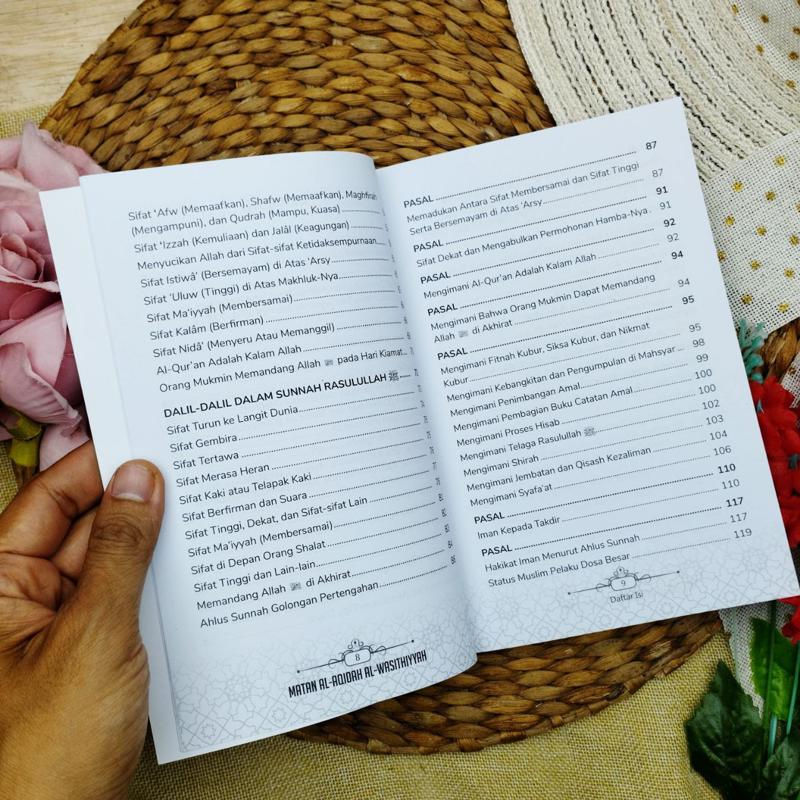 Sifat ‘Afw (Memaafkan), Shafw (Memaafkan), Maghfirah
(Mengampuni), dan Qudrah (Mampu, Kuasa)
Sifat ‘Izzah (Kemuliaan) dan Jalâl (Keagungan)
Menyucikan Allah dari Sifat-sifat Ketidaksempurnaan
Sifat Istiwâ’ (Bersemayam) di Atas ‘Arsy
Sifat ‘Uluw (Tinggi) di Atas Makhluk-Nya
Sifat Ma’iyyah (Membersamai)
Sifat Kalâm (Berfirman)
Sifat Nidâ’ (Menyeru Atau Memanggil)
Al-Qur’an Adalah Kalam Allah
Orang Mukmin Memandang Allah ﷻ pada Hari Kiamat
DALIL-DALIL DALAM SUNNAH RASULULLAH ﷺ
Sifat Turun ke Langit Dunia
Sifat Gembira
Sifat Tertawa
Sifat Merasa Heran
Sifat Kaki atau Telapak Kaki
Sifat Berfirman dan Suara
Sifat Tinggi, Dekat, dan Sifat-sifat Lain
Sifat Ma’iyyah (Membersamai)
Sifat di Depan Orang Shalat
Sifat Tinggi dan Lain-lain
Memandang Allah ﷻ di Akhirat
Ahlus Sunnah Golongan Pertengahan
8
MATAN AL-AQIDAH AL-WASITHIYYAH
PASAL 87
Memadukan Antara Sifat Membersamai dan Sifat Tinggi
Serta Bersemayam di Atas ‘Arsy 87
PASAL 91
Sifat Dekat dan Mengabulkan Permohonan Hamba-Nya 91
PASAL 92
Mengimani Al-Qur’an Adalah Kalam Allah 92
PASAL 94
Mengimani Bahwa Orang Mukmin Dapat Memandang
Allah ﷻ di Akhirat 94
PASAL 95
Mengimani Fitnah Kubur, Siksa Kubur, dan Nikmat
Kubur 95
Mengimani Kebangkitan dan Pengumpulan di Mahsyar 98
Mengimani Penimbangan Amal 99
Mengimani Pembagian Buku Catatan Amal 100
Mengimani Proses Hisab 100
Mengimani Telaga Rasulullah ﷺ 102
Mengimani Shirah 103
Mengimani Jembatan dan Qisash Kezaliman 104
Mengimani Syafa’at 106
PASAL 110
Iman Kepada Takdir 110
PASAL 117
Hakikat Iman Menurut Ahlus Sunnah 117
Status Muslim Pelaku Dosa Besar 119
9
Daftar Isi